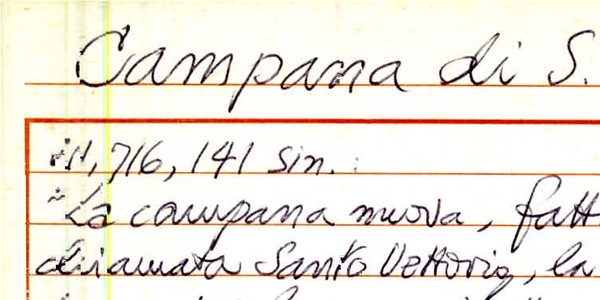 Campana di S.
11, 716, 141 sin. :
"La campana nuova, fatt
chiamata Santo Vettorio, la